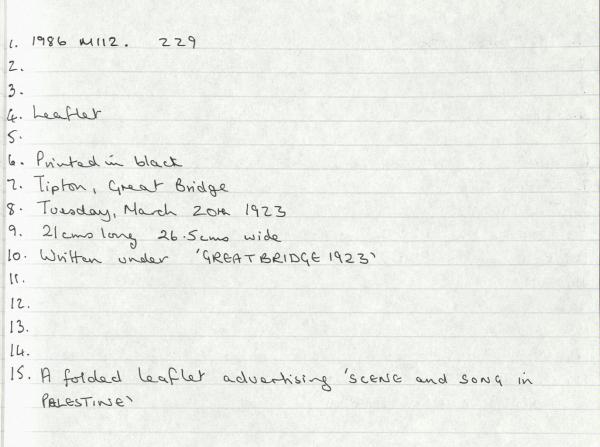 1. 1986 M112. 229
2.
3.
4. Leaflet
5.
6. Printed in black
7. Tipton, Great Bridge
8. Tuesday, March 20th 1923
9. 21cms long 26.5cms wide
10. Written under 'GREAT BRIDGE 1923'
11.
12.
13.
14.
15. A folded leaflet advertising 'SCENE and SONG in
PALESTINE'